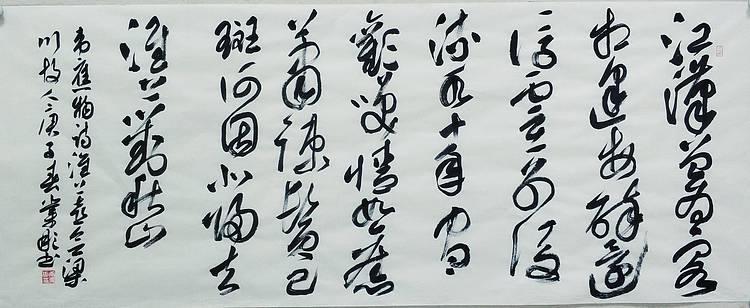 江漢曾為客
相逢每醉還
浮雲一別後
流水十年间
歡笑情如舊
蕭疎鬢已
斑何因北歸去
淮上對秋山
韋應物詩淮上喜會梁
川故人庚子春書